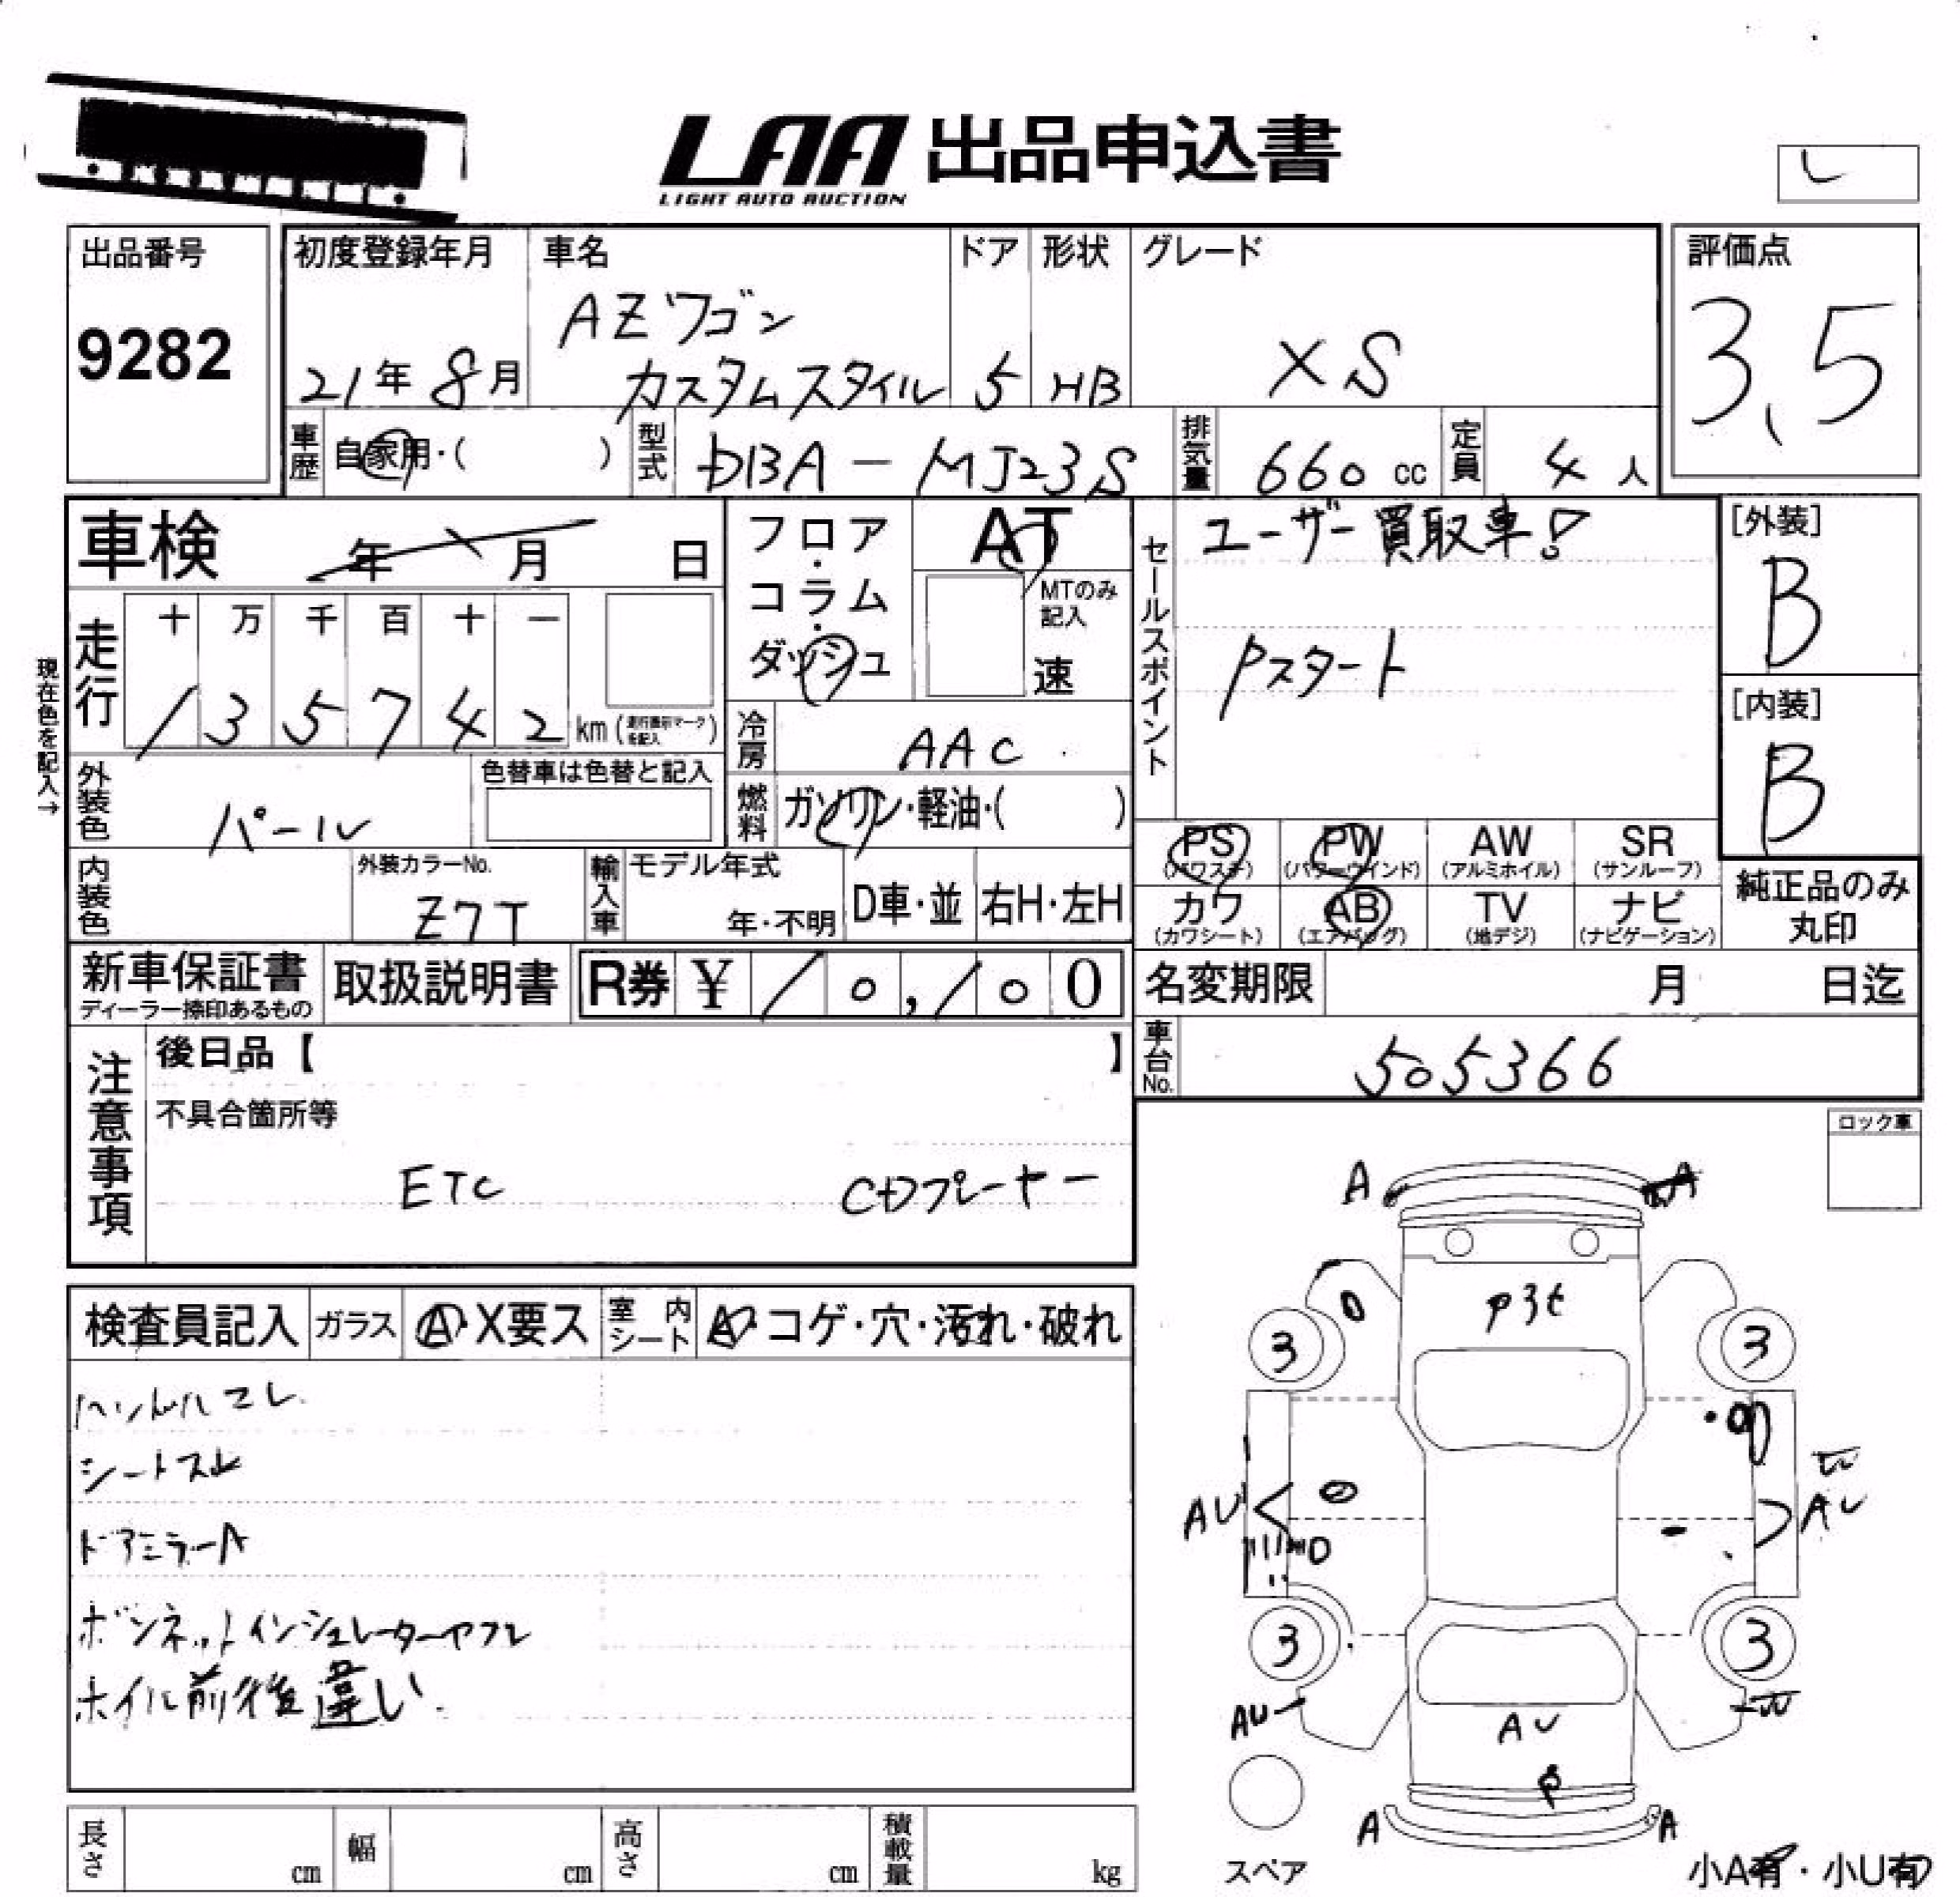 LAA 出品申込書
LIGHT AUTO AUCTION
レ
出品番号
9282
初度登録年月
21年 8月
車名
AZワゴン
カスタムスタイル
ドア
5
形状
HB
グレード
XS
評価点
3.5
車歴 自家用・( )
型式 DBA-MJ23S
排気量 660 cc
定員 4 人
車検 年 月 日
フロア・コラム・ダッシュ
AT
MTのみ記入
速
セールスポイント
ユーザー買取車!
Pスタート
[外装]
B
[内装]
B
現在色を記入→
走行
十 万 千 百 十 一
1 3 5 7 4 2 km (走行表示マークを記入)
冷房 AAC
外装色 パール
色替車は色替と記入
燃料 ガソリン・軽油・( )
内装色
外装カラーNo.
Z7T
輸入車
モデル年式
年・不明
D車・並
右H・左H
PS (パワステ)
PW (パワーウインド)
AW (アルミホイル)
SR (サンルーフ)
カワ (カワシート)
AB (エアバッグ)
TV (地デジ)
ナビ (ナビゲーション)
純正品のみ丸印
新車保証書
ディーラー捺印あるもの
取扱説明書
R券 ¥ 10,100
名変期限 月 日迄
車台No. 505366
注意事項
後日品【 】
不具合箇所等
ETC CDプレーヤー
ロック車
検査員記入
ガラス A・X要ス
室内シート A・コゲ・穴・汚れ・破れ
ハンドルスレ
シートスレ
ドアミラーA
ボンネットインシュレーターヤブレ
ホイル前後違い
A A
3 3
AU AU
3 3
AU
AU
P
A A
スペア
小A有・小U有
長さ cm
幅 cm
高さ cm
積載量 kg